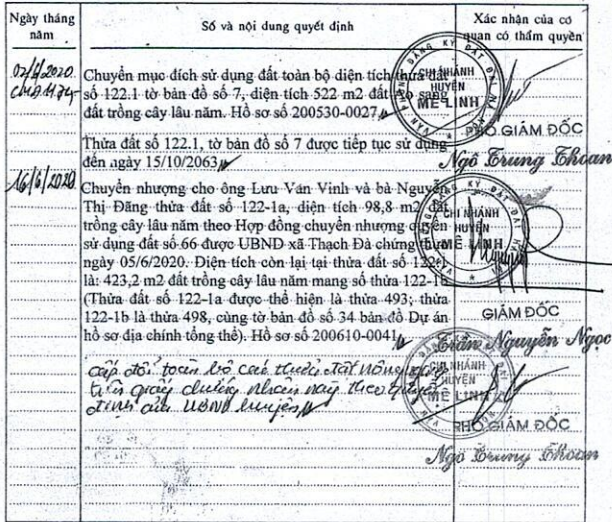 Ngày tháng năm
Số và nội dung quyết định
Xác nhận của cơ quan có thẩm quyền
02/6/2020
Chuyển mục đích sử dụng đất toàn bộ diện tích thửa đất
số 122.1 tờ bản đồ số 7, diện tích 522 m2 đất sang
đất trồng cây lâu năm. Hồ sơ số 200530-0027
Thửa đất số 122.1, tờ bản đồ số 7 được tiếp tục sử dụng
đến ngày 15/10/2063
VĂN PHÒNG ĐĂNG KÝ ĐẤT ĐAI
CHI NHÁNH
HUYỆN
MÊ LINH
PHÓ GIÁM ĐỐC
Ngô Trung Khoan
16/6/2020
Chuyển nhượng cho ông Lưu Văn Vinh và bà Nguyễn
Thị Đăng thửa đất số 122-1a, diện tích 98,8 m2 đất
trồng cây lâu năm theo Hợp đồng chuyển nhượng quyền
sử dụng đất số 66 được UBND xã Thạch Đà chứng thực
ngày 05/6/2020. Diện tích còn lại tại thửa đất số 122-1
là: 423,2 m2 đất trồng cây lâu năm mang số thửa 122-1b
(Thửa đất số 122-1a được thể hiện là thửa 493; thửa
122-1b là thửa 498, cùng tờ bản đồ số 34 bản đồ Dự án
hồ sơ địa chính tổng thể). Hồ sơ số 200610-0041
CHI NHÁNH
HUYỆN
MÊ LINH
GIÁM ĐỐC
Trần Nguyễn Ngọc
cấp đổi toàn bộ các thửa đất nông nghiệp
trên giấy chứng nhận này theo quyết
định của UBND huyện
CHI NHÁNH
HUYỆN
MÊ LINH
PHÓ GIÁM ĐỐC
Ngô Trung Khoan